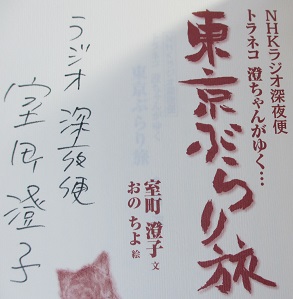 NHKラジオ深夜便
トラネコ 澄ちゃんがゆく…
東京ぶらり旅
室町 澄子 文
おの ちよ 絵
ラジオ 深夜便
室町澄子